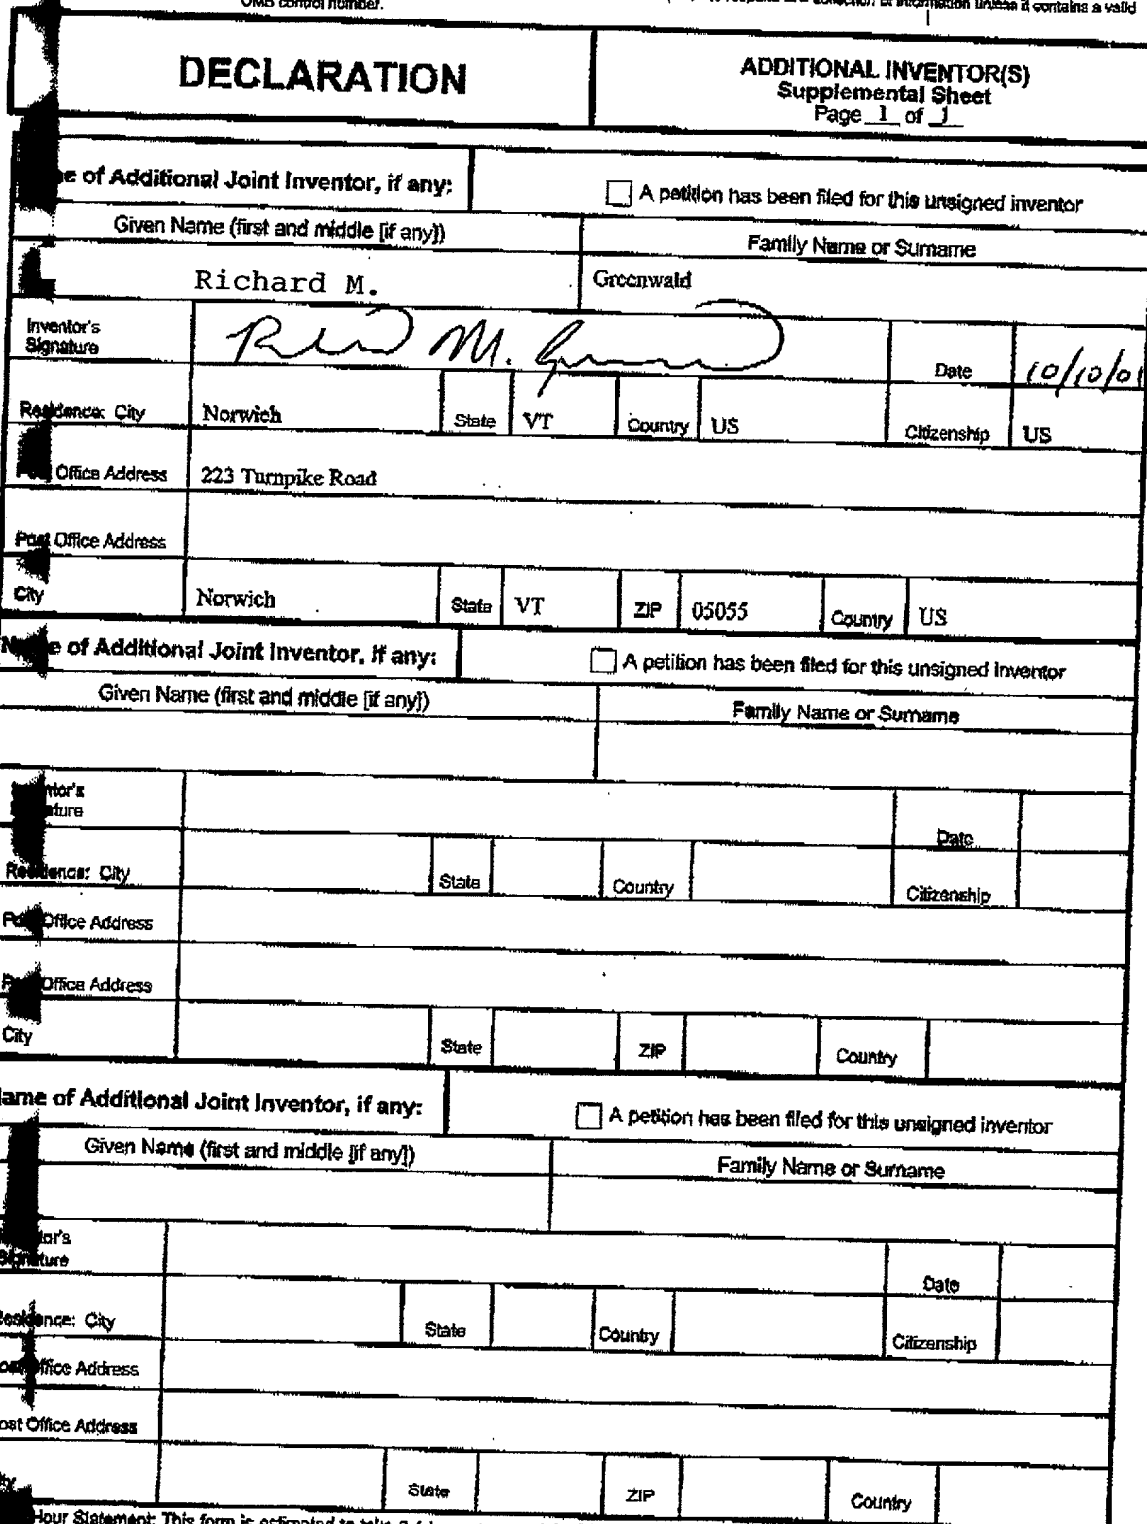 OMB control number. information unless it contains a valid
DECLARATION
ADDITIONAL INVENTOR(S)
Supplemental Sheet
Page 1 of 1
e of Additional Joint Inventor, if any:
A petition has been filed for this unsigned inventor
Given Name (first and middle [if any])
Family Name or Surname
Richard M.
Greenwald
Inventor's
Signature
Richard M. Greenwald
Date
10/10/01
Residence: City
Norwich
State
VT
Country
US
Citizenship
US
Post Office Address
223 Turnpike Road
Post Office Address
City
Norwich
State
VT
ZIP
05055
Country
US
Name of Additional Joint Inventor, if any:
A petition has been filed for this unsigned inventor
Given Name (first and middle [if any])
Family Name or Surname
ntor's
ature
Date
Residence: City
State
Country
Citizenship
Post Office Address
Post Office Address
City
State
ZIP
Country
ame of Additional Joint Inventor, if any:
A petition has been filed for this unsigned inventor
Given Name (first and middle [if any])
Family Name or Surname
tor's
Signature
Date
esidence: City
State
Country
Citizenship
ost Office Address
ost Office Address
ity
State
ZIP
Country
Hour Statement: This form is estimated to take